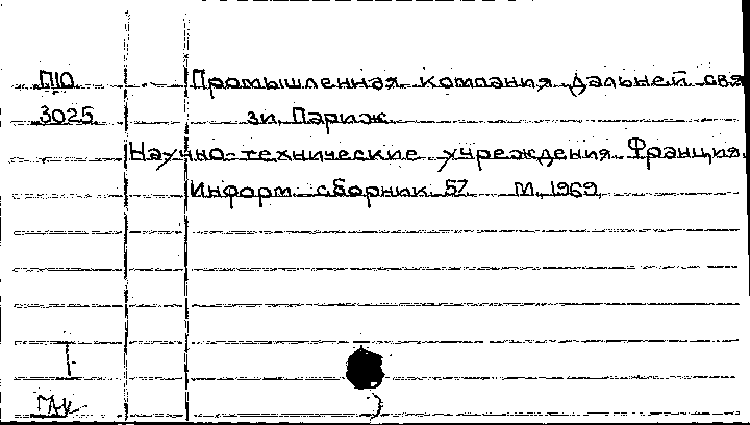 П10 Промышленная компания дальней свя
3025 зи. Париж
Научно-технические учреждения Франция.
Информ. сборник 57 М., 1969